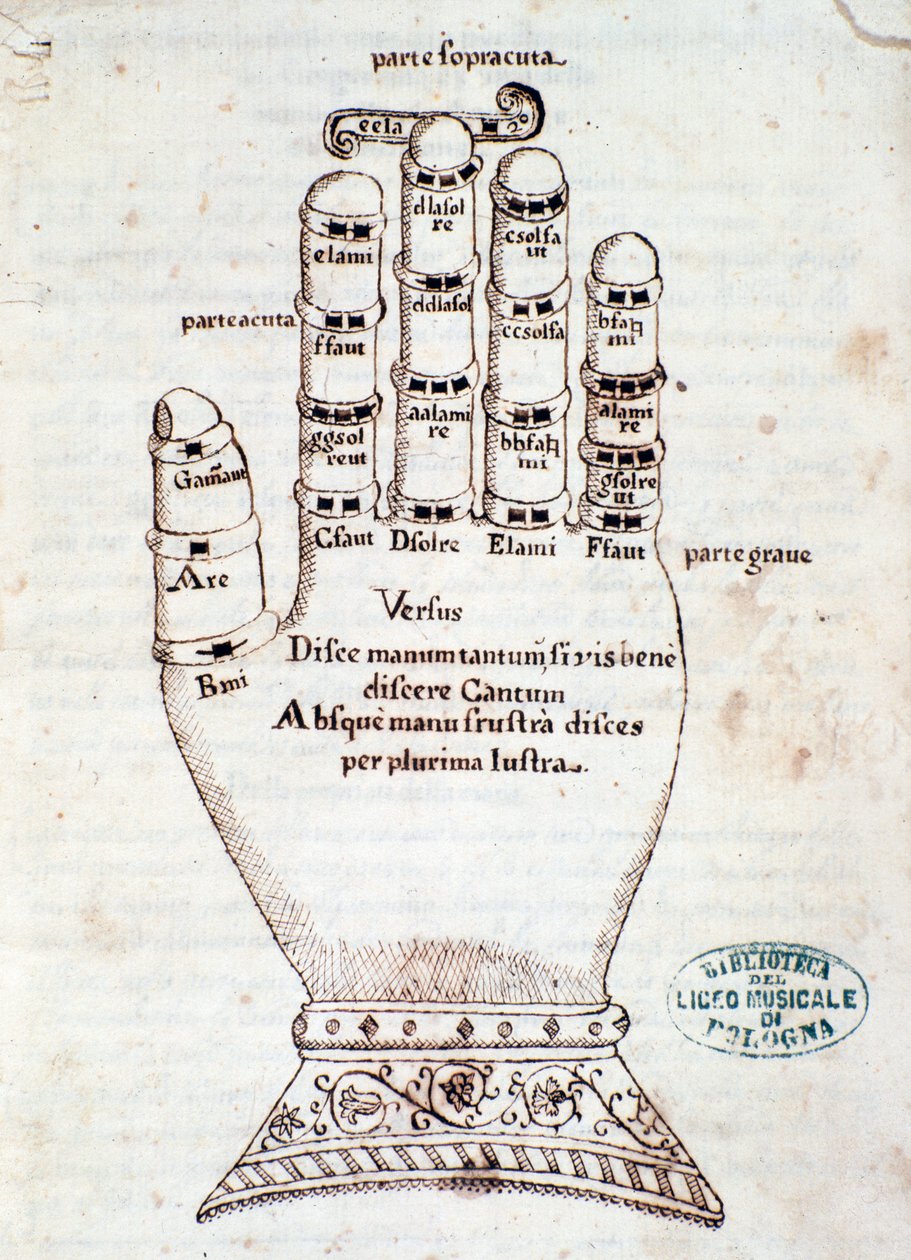 parte sopracuta
eela
dlasol
re
elami
csolfa
ut
ddlasol
bfa♮
mi
parteacuta
ffaut
ccsolfa
aalami
re
alami
re
ggsol
reut
bbfa♮
mi
Gam̃aut
gsolre
ut
Cfaut
Dsolre
Elami
Ffaut
parte graue
Are
Bmi
Versus
Disce manum tantum, si vis benè
discere Cantum
Absque manu frustrà disces
per plurima lustra.
BIBLIOTECA
DEL
LICEO MUSICALE
DI
BOLOGNA